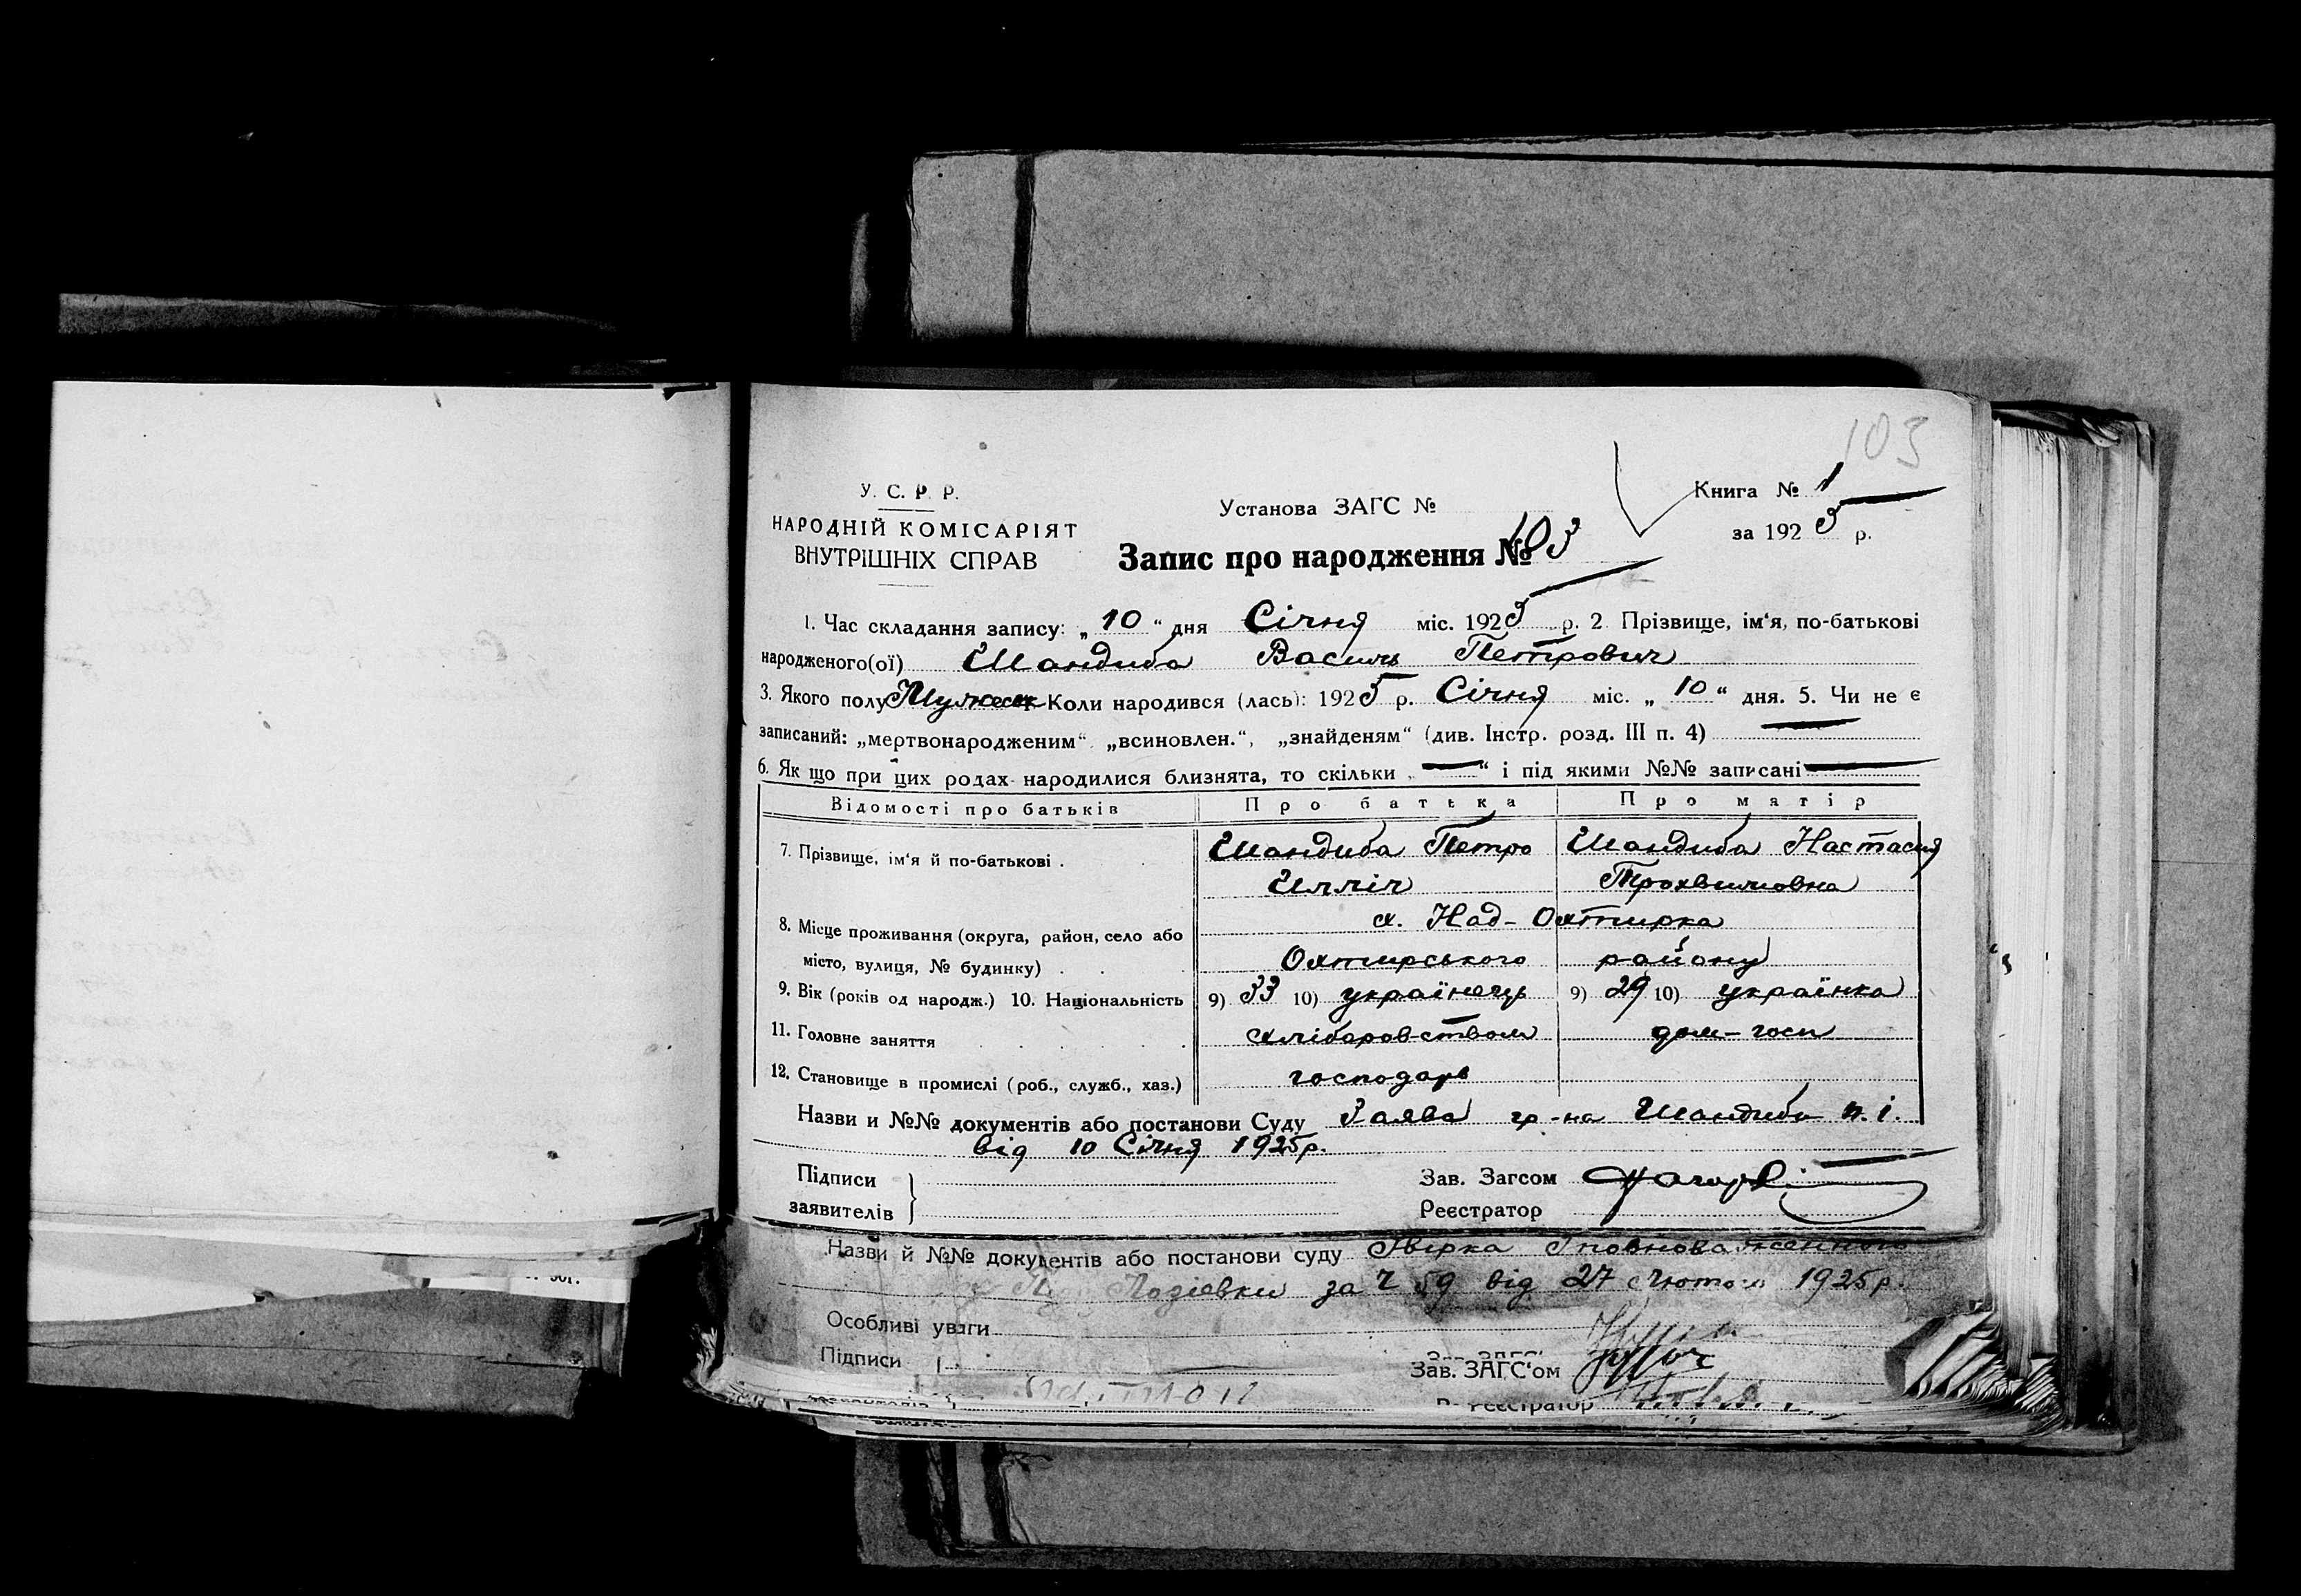 103
У. С. Р. Р.
НАРОДНІЙ КОМІСАРІЯТ
ВНУТРІШНІХ СПРАВ
Установа ЗАГС №
Книга № 1
за 1925 р.
Запис про народження № 103
1. Час складання запису: „10“ дня Січня міс. 1925 р. 2 Прізвище, ім‘я, по-батькові
народженого(ої) Шандиба Василь Петрович
3. Якого полу Мужеск Коли народився (лась): 1925 р. Січня міс. „10“ дня. 5. Чи не є
записаний: „мертвонародженим“ „всиновлен.“, „знайденям“ (див. Інстр. розд. III п. 4)
6. Як що при цих родах народилися близнята, то скільки „—“ і під якими №№ записані
Відомості про батьків Про батька Про матір
7. Прізвище, ім‘я й по-батькові . Шандиба Петро Шандиба Настасия
Илліч Трохвимовна
8. Місце проживання (округа, район, село або х. Над-Охтирка
місто, вулиця, № будинку) . . . Охтирського району
9. Вік (років од народж.) 10. Національність 9) 33 10) українець 9) 29 10) українка
11. Головне заняття хліборобством дом-госп
12. Становище в промислі (роб., служб., хаз.) господарь
Назви и №№ документів або постанови Суду Заява гр-на Шандиби п.і.
від 10 Січня 1925р.
Підписи
заявителів
Зав. Загсом
Реєстратор
Назви й №№ документів або постанови суду
за Ч 59 від 27 Лютого 1925р.
Особливі уваги
Підписи
Зав. ЗАГС‘ом
Реєстратор